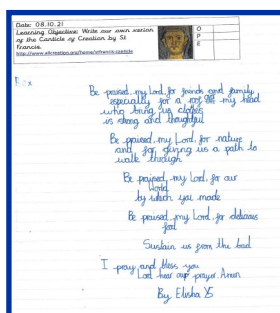 Date: 08.10.21
Learning Objective: Write our own version
of the Canticle of Creation by St
Francis
http://www.ofcreation.org/home/stfrancis-canticle
O
P
E
Be praised, my Lord, for friends and family,
especially for a roof my head
who bring us clothes
is strong and thoughtful
Be praised, my Lord, for nature
and for giving us a path to
walk through
Be praised, my Lord, for our
World
by which you made
Be praised, my Lord, for delicious
food
Sustain us from the bad
I pray, and bless you
Lord hear our prayer. Amen
By Elisha Y5